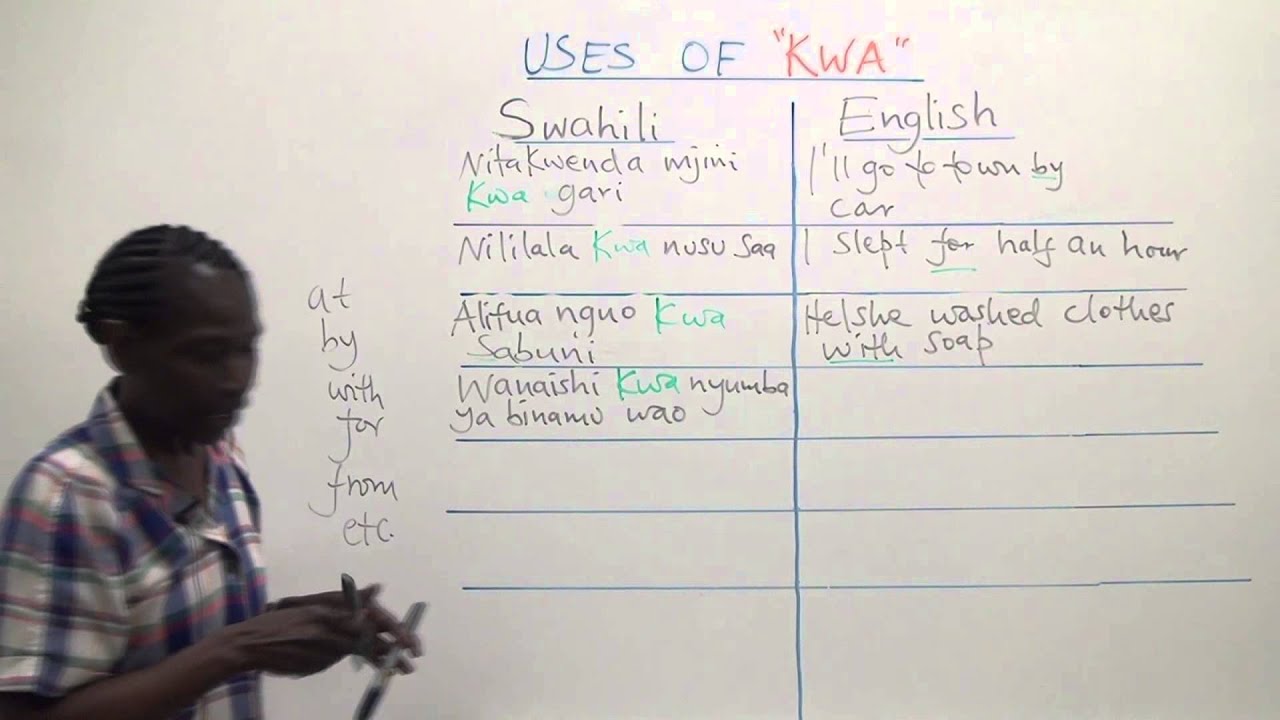 USES OF "KWA"
Swahili
English
Nitakwenda mjini
Kwa gari
I'll go to town by
car
Nililala Kwa nusu saa
I slept for half an hour
Alifua nguo Kwa
Sabuni
He/she washed clothes
with soap
Wanaishi Kwa nyumba
ya binamu wao
at
by
with
for
from
etc.